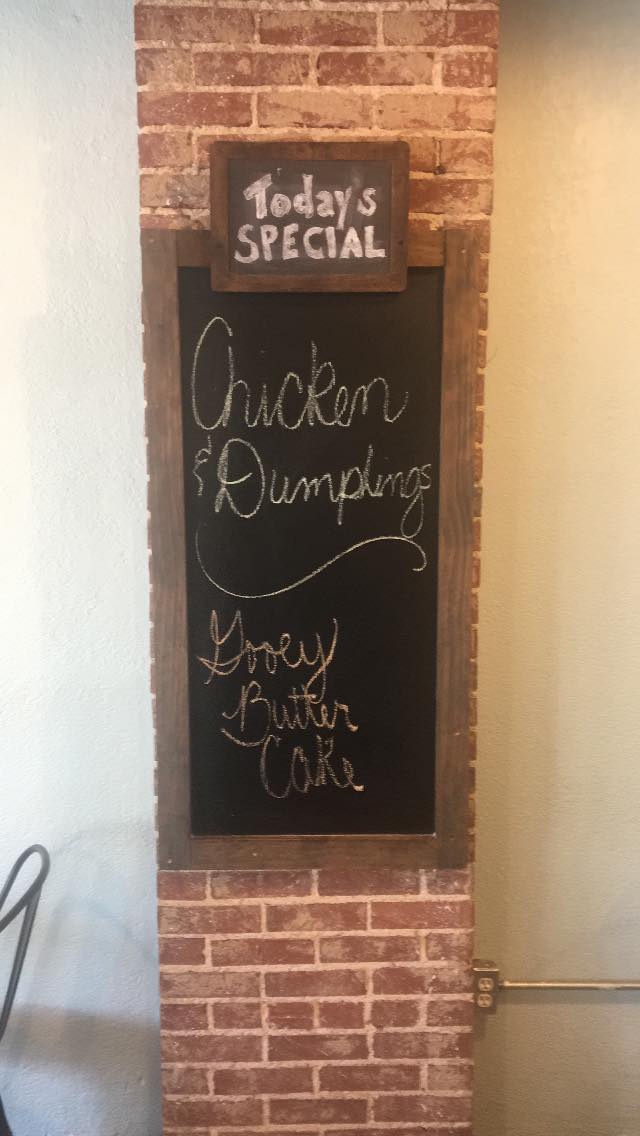 Today's
SPECIAL
Chicken
& Dumplings
Gooey
Butter
Cake